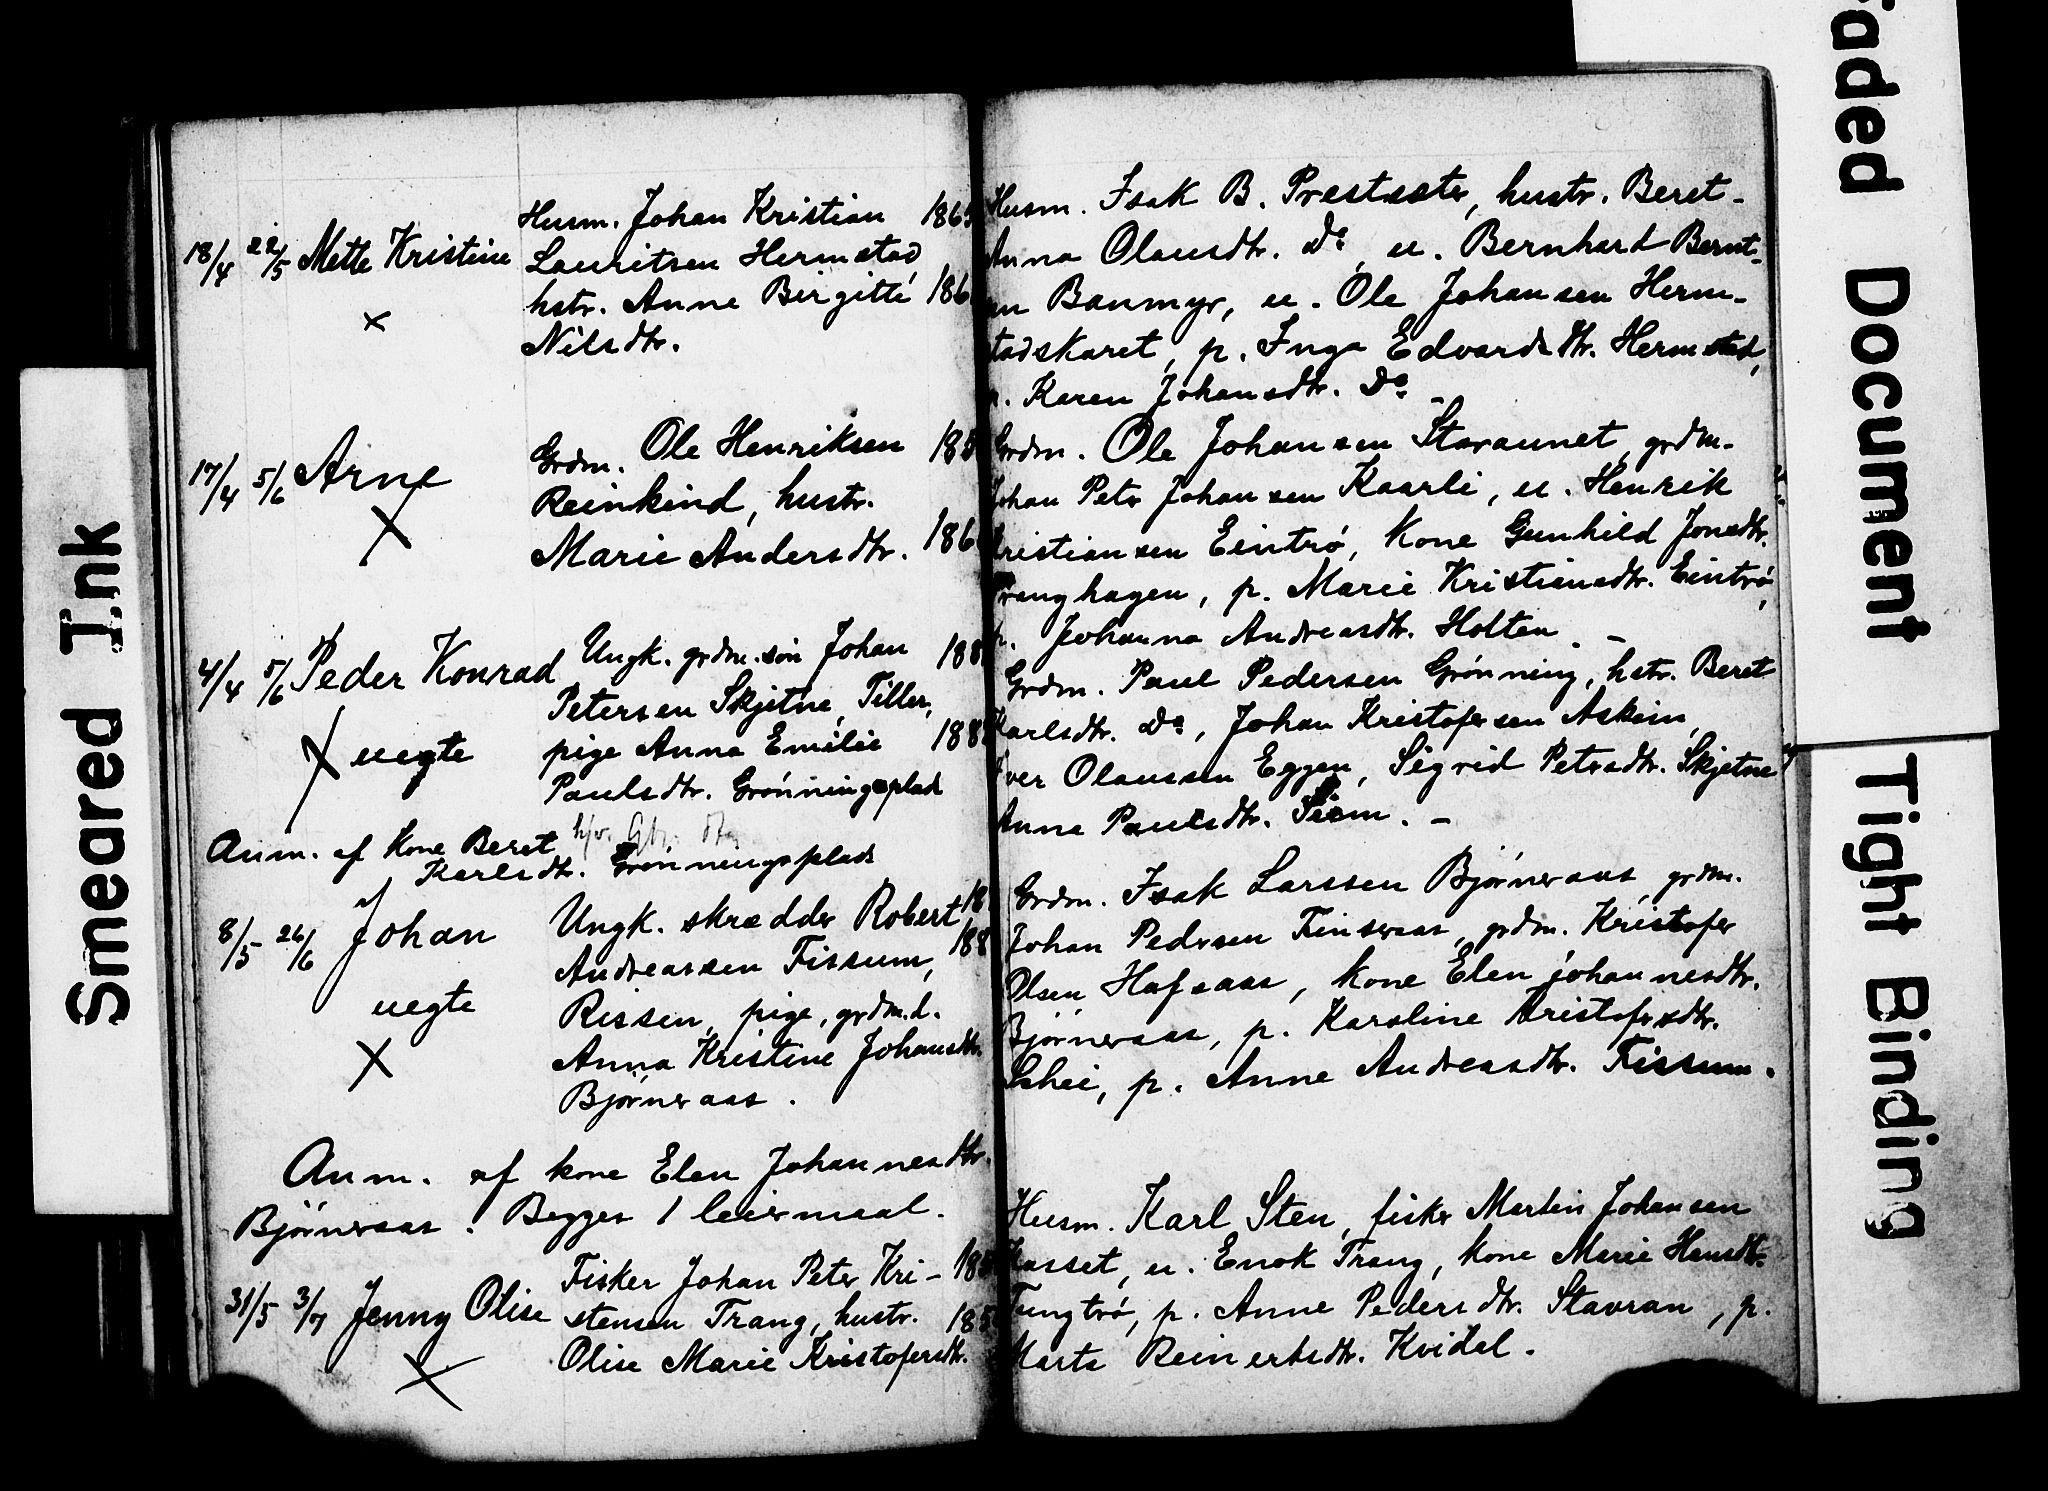 18/4 22/5 Mette Kristine
×
Husm. Johan Kristian 186
Lauritsen Hermstad
hstr. Anne Birgitte 186
Nilsdtr.
Husm. Isak B. Prestsæter, hustr. Beret-
Anna Olausdtr. Do, u. Bernhard Bernt-
en Banmyr, u. Ole Johansen Herm-
tadskaret, p. Inga Edvardsdtr. Hermstad,
p. Karen Johansdtr. Do. -
17/4 5/6 Arne
×
Grdm. Ole Henriksen 185
Reinkind, hustr.
Marie Andersdtr. 186
Grdm. Ole Johansen Stavaunet, grdm.
Johan Peter Johansen Kaarli, u. Henrik
Kristiansen Eintrø, kone Gunhild Jonsdtr.
Tranghagen, p. Marie Kristiansdtr. Eintrø,
p. Johanna Andreasdtr. Holten. -
4/4 5/6 Peder Konrad
× uegte
Ungk. grdm.søn Johan 188
Petersen Skjetne, Tiller,
pige Anna Emilie 188
Paulsdtr. Grønningsplad
Anm. af Kone Beret
Karlsdtr. Grønningsplads
Grdm. Paul Pedersen Grønning, hstr. Beret
Karlsdtr. Do, Johan Kristofersen Askein,
Iver Olaussen Eggen, Sigrid Petersdtr. Skjetne
Anne Paulsdtr. Siem. -
8/5 26/6 Johan
uegte
×
Ungk. skrædder Robert 18
Andreassen Fissum, 188
Rissen, pige, grdm.d.
Anna Kristine Johansdtr.
Bjørneraas.
Anm. af kone Elen Johannesdtr.
Bjørneraas. Begges 1 leiermaal.
Grdm. Isak Larssen Bjørneraas, grdm.
Johan Pedersen Finseraas, grdm. Kristofer
Olsen Hafsaas, kone Elen Johannesdtr.
Bjørneraas, p. Karoline Kristofersdtr.
Schei, p. Anne Andreasdtr. Fissum.
31/5 3/7 Jenny Olise
×
Fisker Johan Peter Kri- 185
stensen Trang, hustr. 185
Olise Marie Kristofersdtr.
Husm. Karl Sten, fisker Martin Johansen
Hasset, u. Enok Trang, kone Marie Hansdtr.
Tungtrø, p. Anne Pedersdtr. Stavran, p.
Marta Reinertsdtr. Kvidal.
Smeared Ink
Faded Document
Tight Binding